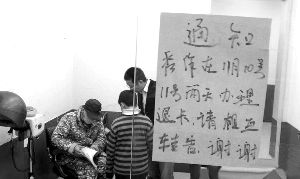 通知
兹体在11月10号
11号两天办理
退卡,请相互
转告。谢谢